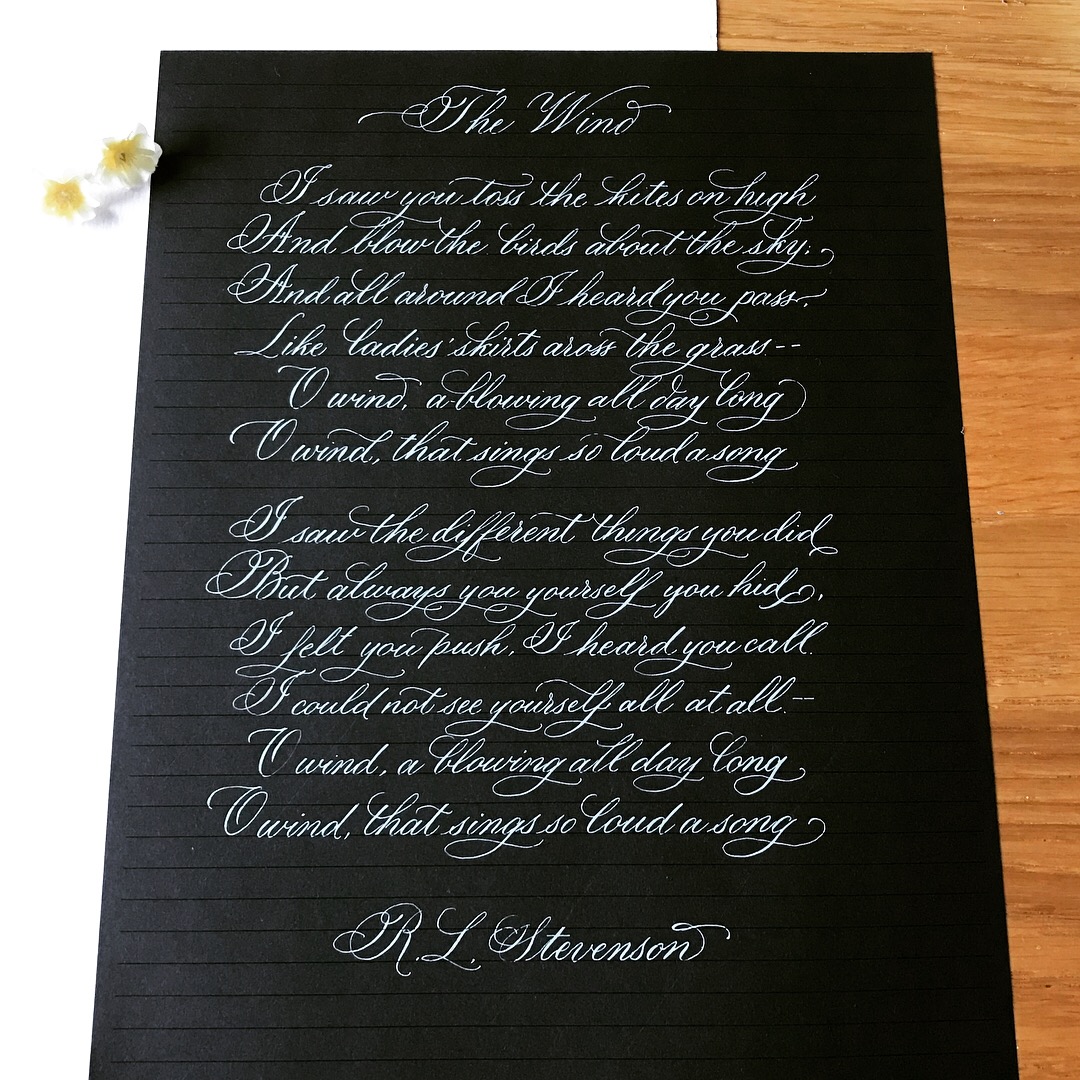 The Wind
I saw you toss the kites on high
And blow the birds about the sky;
And all around I heard you pass,
Like ladies' skirts aross the grass--
O wind, a-blowing all day long
O wind, that sings so loud a song
I saw the different things you did
But always you yourself you hid,
I felt you push, I heard you call.
I could not see yourself all at all--
O wind, a blowing all day long,
O wind, that sings so loud a song
R.L. Stevenson